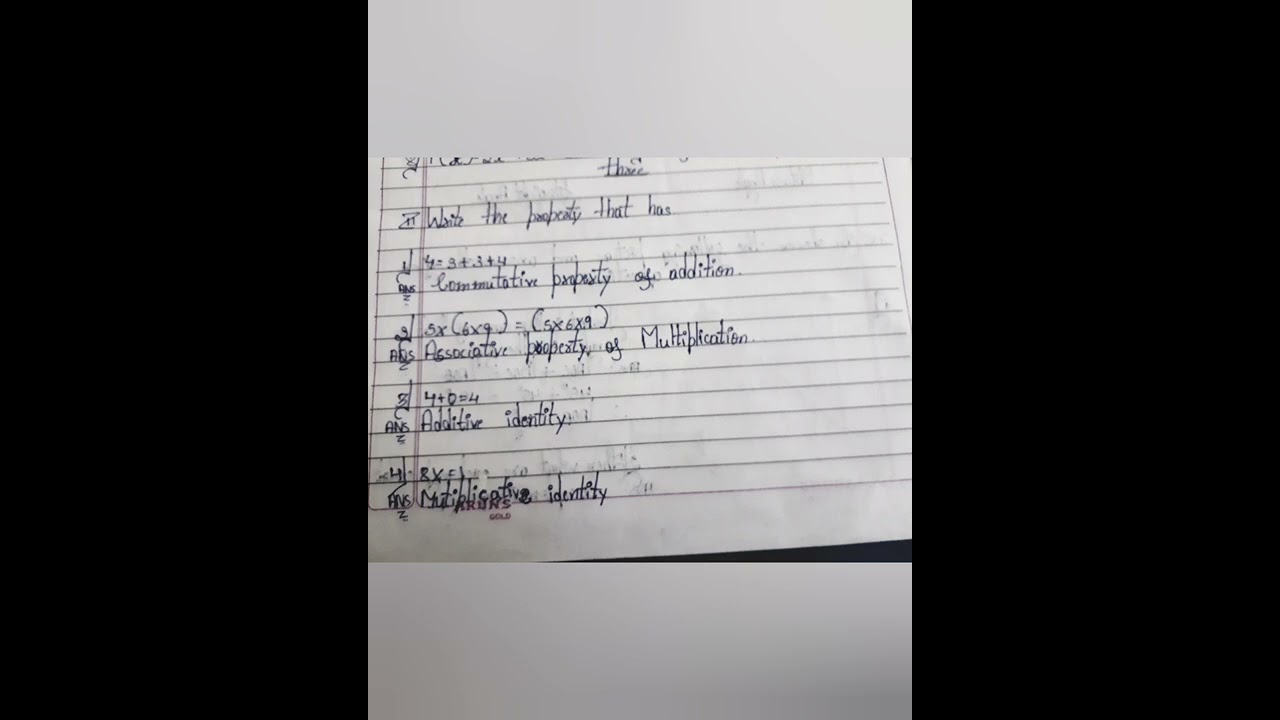 three
II Write the property that has
1) 4=3+3+4
Ans Commutative property of addition.
2) 5x(6x9) = (5x6x9)
Ans Associative property of Multiplication.
3) 4+0=4
Ans Additive identity.
4) 8x=1
Ans Mutiplicative identity
ARUNS
GOLD